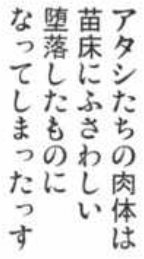 アタシたちの肉体は
苗床にふさわしい
堕落したものに
なってしまったっす